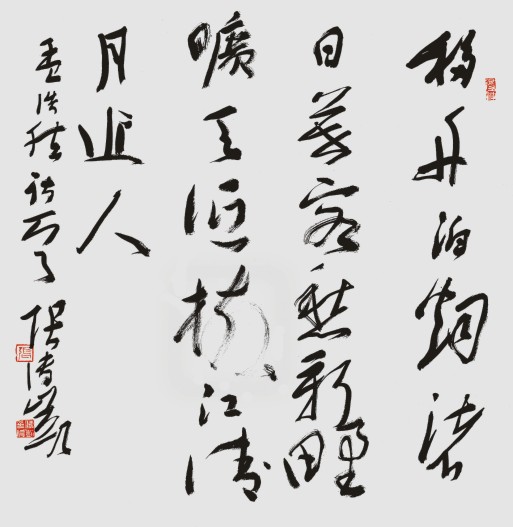 移舟泊烟渚
日暮客愁新野
曠天低樹江清
月近人
孟浩然詩